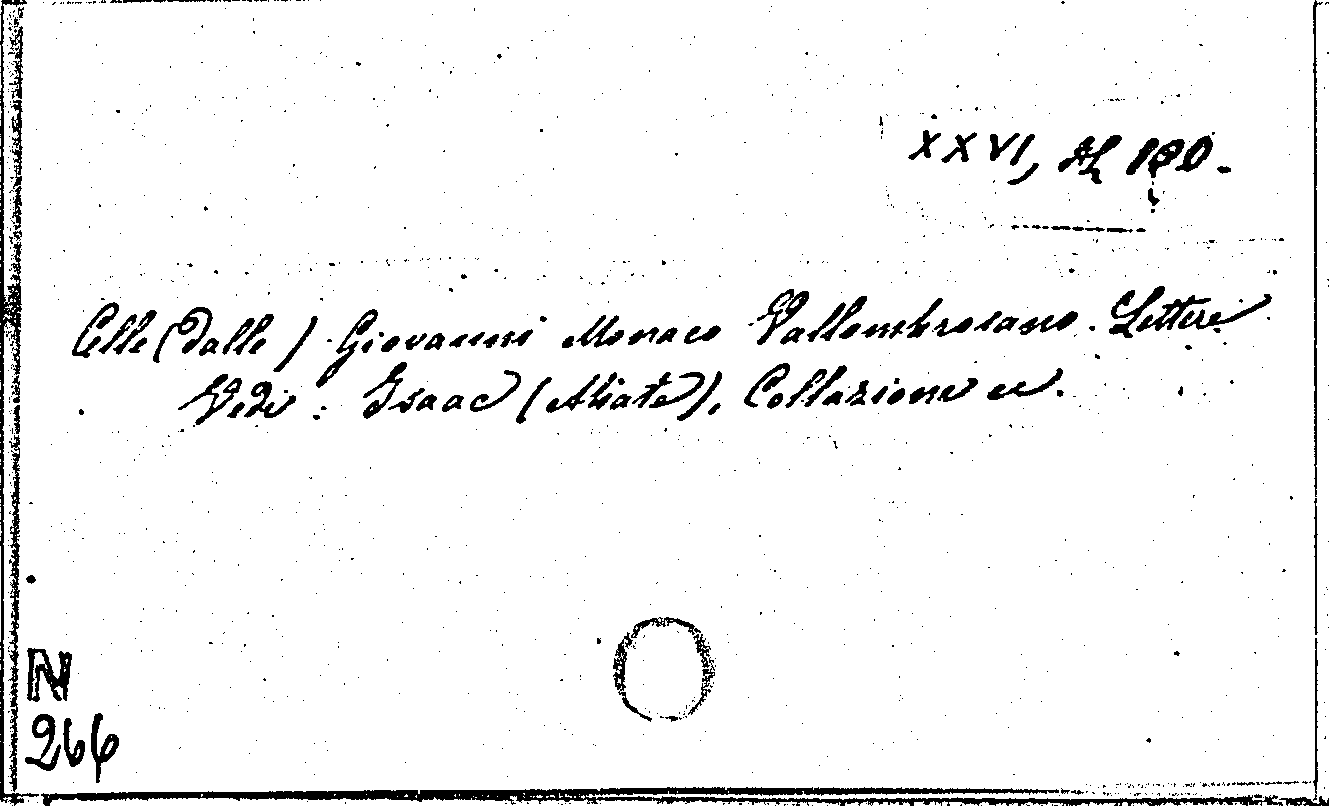 XXVI, Al 180.
Celle (Dalle) Giovanni Monaco Vallombrosano. Lettere
Vedi: Isaac (Abate), Collazione ec.
N
266